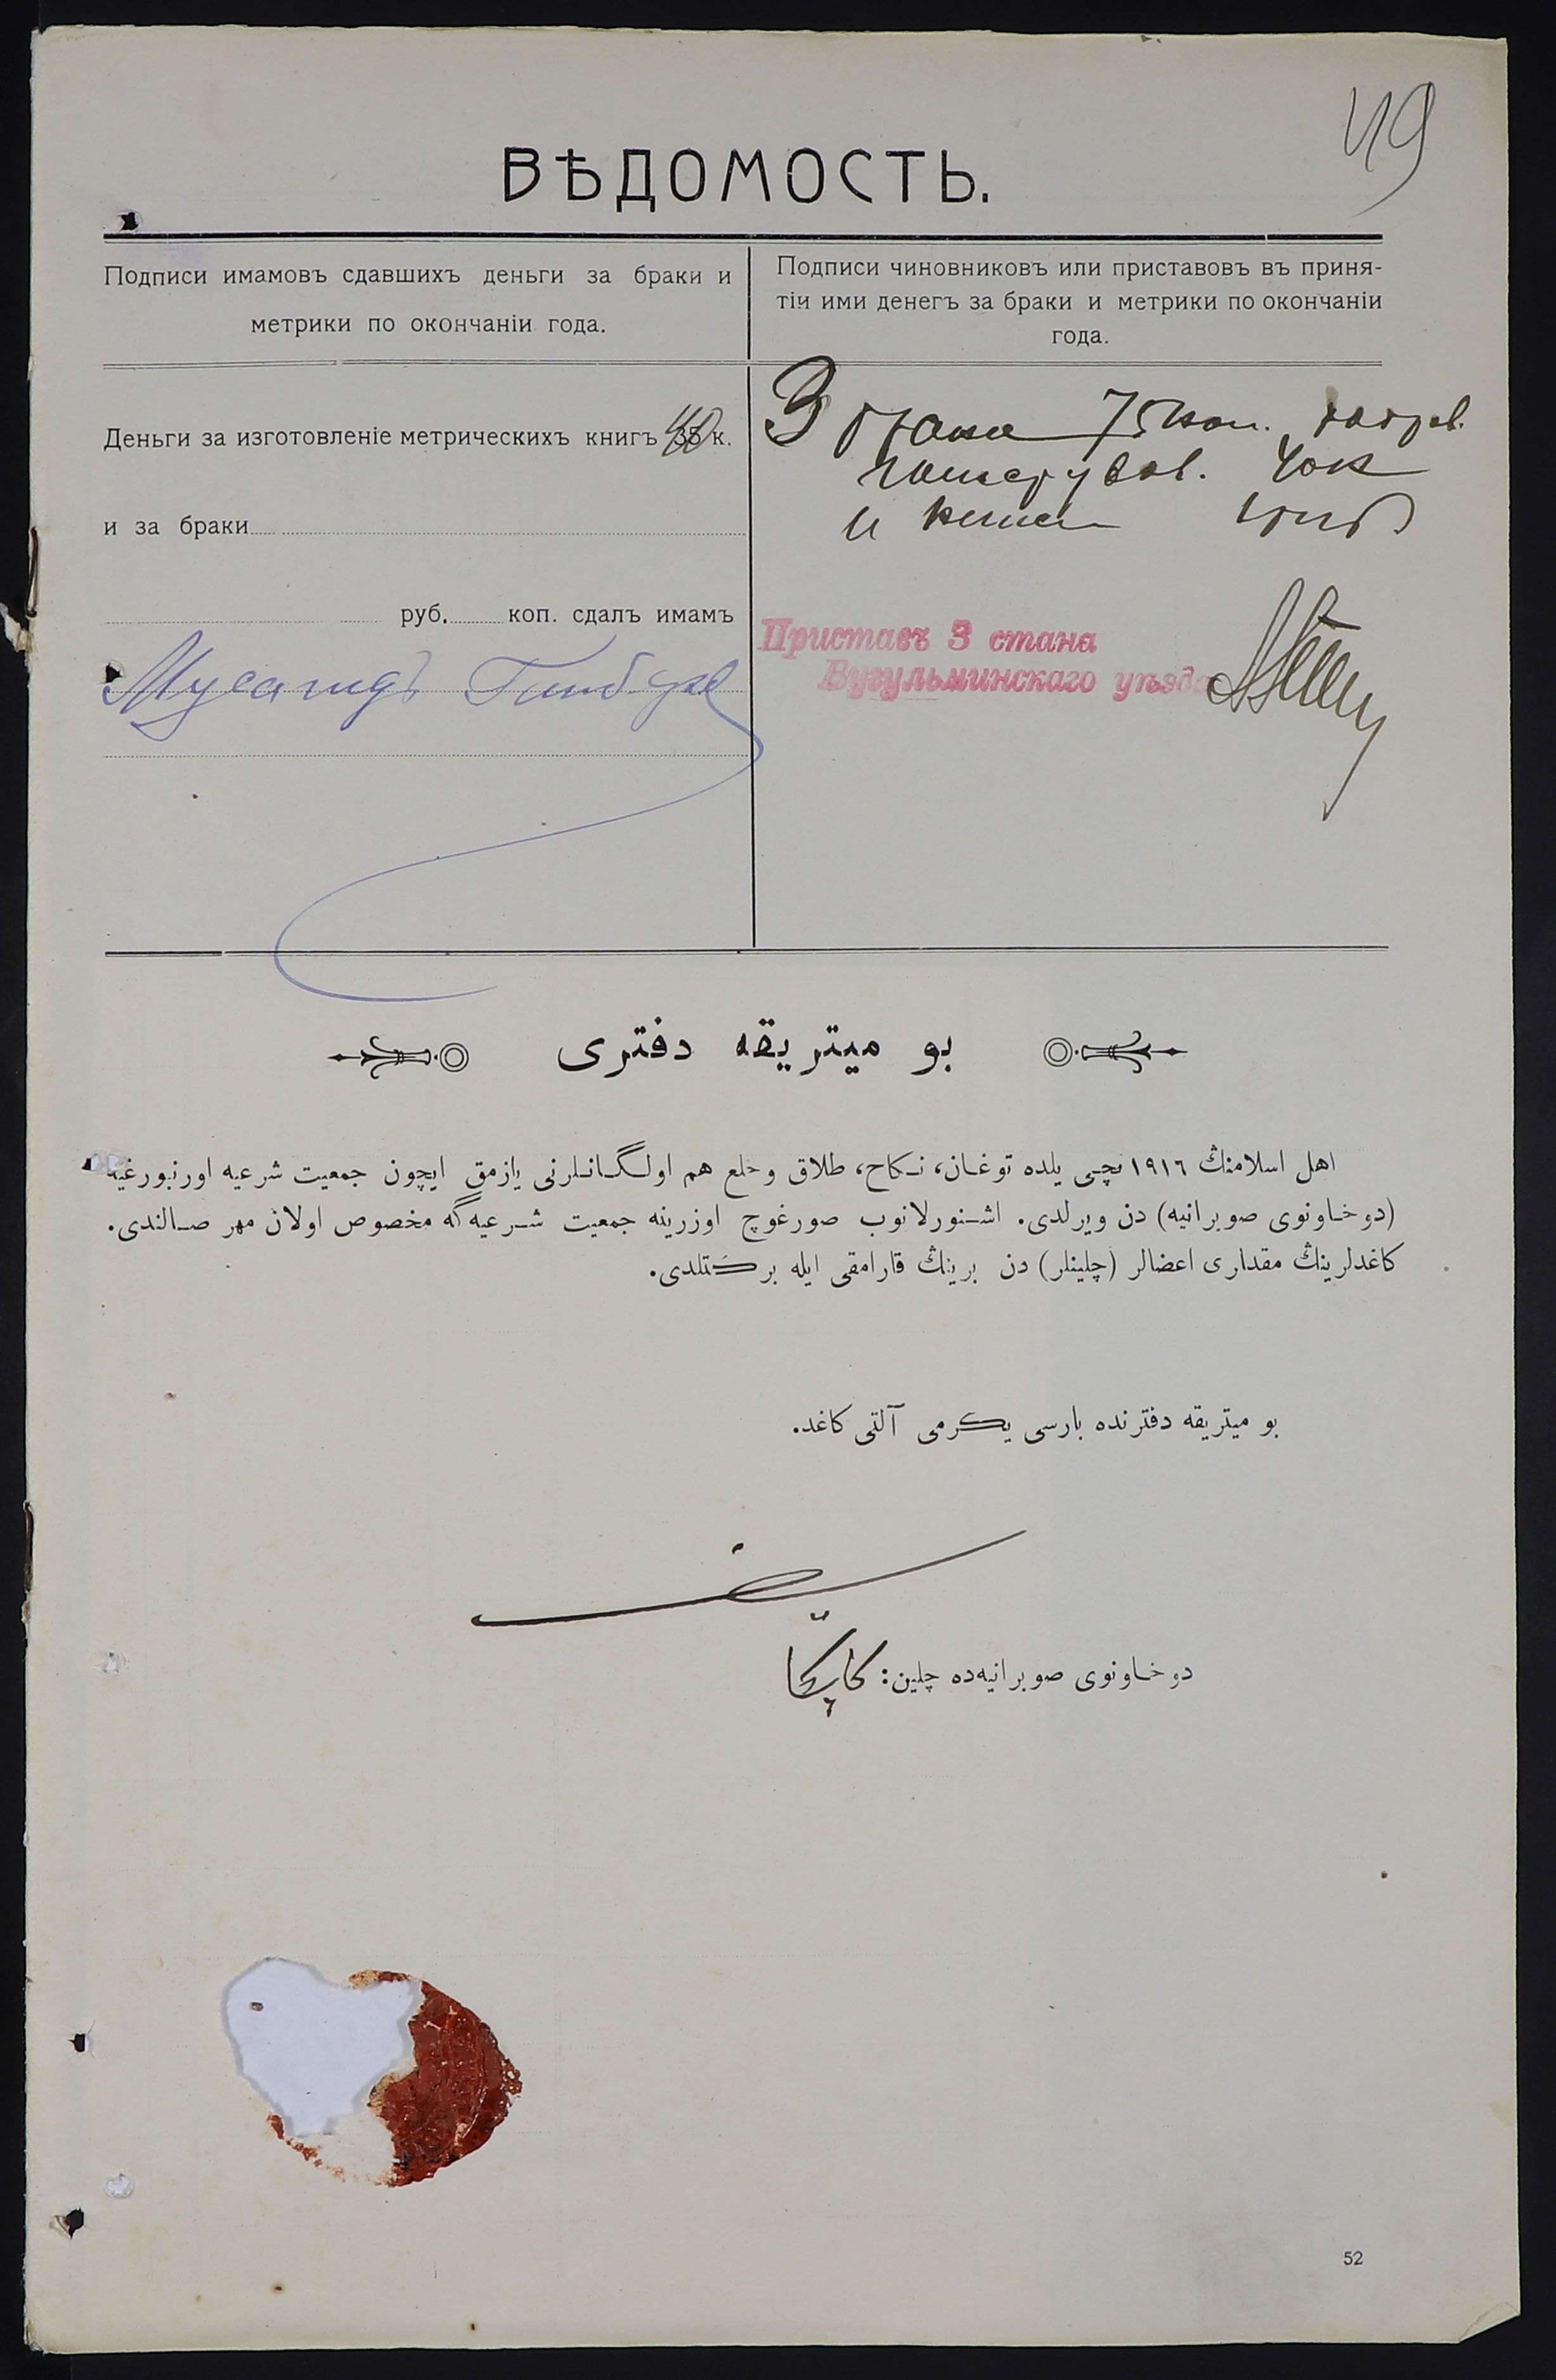 49
ВѢДОМОСТЬ.
Подписи имамовъ сдавшихъ деньги за браки и
метрики по окончаніи года.
Подписи чиновниковъ или приставовъ въ приня-
тіи ими денегъ за браки и метрики по окончаніи
года.
Деньги за изготовленіе метрическихъ книгъ 35 40 к.
и за браки
руб. коп. сдалъ имамъ
Мусагидъ
З брака 75 коп.
40 к
и книги
Приставъ 3 стана
Бугульминскаго уѣзда
بو میتریقه دفتری
اهل اسلامنڭ ١٩١٦ نچی یلده توغان، نکاح، طلاق وخلع هم اولگانلرنی یازمق ایچون جمعیت شرعیه اورنبورغیه
(دوخاونوی صوبرانیه) دن ویرلدی. اشنورلانوب صورغوچ اوزرینه جمعیت شرعیه‌گه مخصوص اولان مهر صالندی.
کاغدلرینڭ مقداری اعضالر (چلینلر) دن برینڭ قارامقی ایله برکتلدی.
بو میتریقه دفترنده بارسی یکرمی آلتی کاغد.
دوخاونوی صوبرانیه‌ده چلین:
52